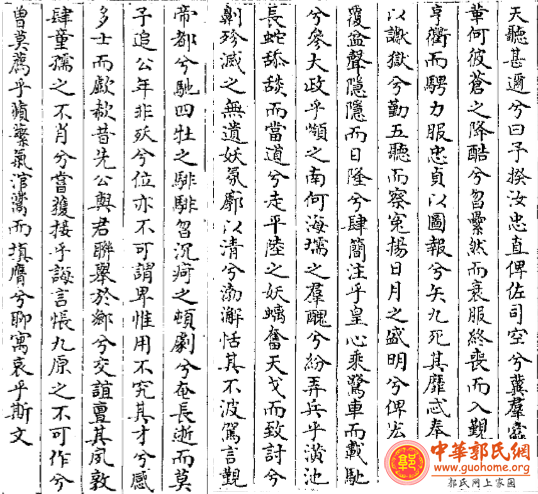 天聽甚邇兮曰予揆汝忠直俾佐司空兮冀羣寮
華何彼蒼之降酷兮曶纍然而衰服終喪而入覲
亨衢而騁力服忠貞以圖報兮矢九死其靡忒奉
以讞獄兮勤五聽而察冤揚日月之盛明兮俾宏
覆盆聲隱隱而日隆兮肆簡注乎皇心乘車而載馳
兮參大政乎嶺之南何海壖之羣醜兮紛弄兵乎潢池
長蛇舕而當道兮走平陸之妖螭奮天戈而致討兮
剿殄滅之無遺妖氛廓以清兮渤澥恬其不波駕言覲
帝都兮馳四牡之騑騑曶沉疴之頓劇兮奄長逝而莫
子追公年非殀兮位亦不可謂卑惟用不究其才兮感
多士而歔欷昔先公與君聯舉於鄉兮交誼亶其夙敦
肆童孺之不肖兮嘗獲接乎誨言悵九原之不可作兮
曾莫薦乎蘋蘩氣滃而填膺兮聊寓哀乎斯文
中華郭氏網
www.guohome.org
郭氏网上家园